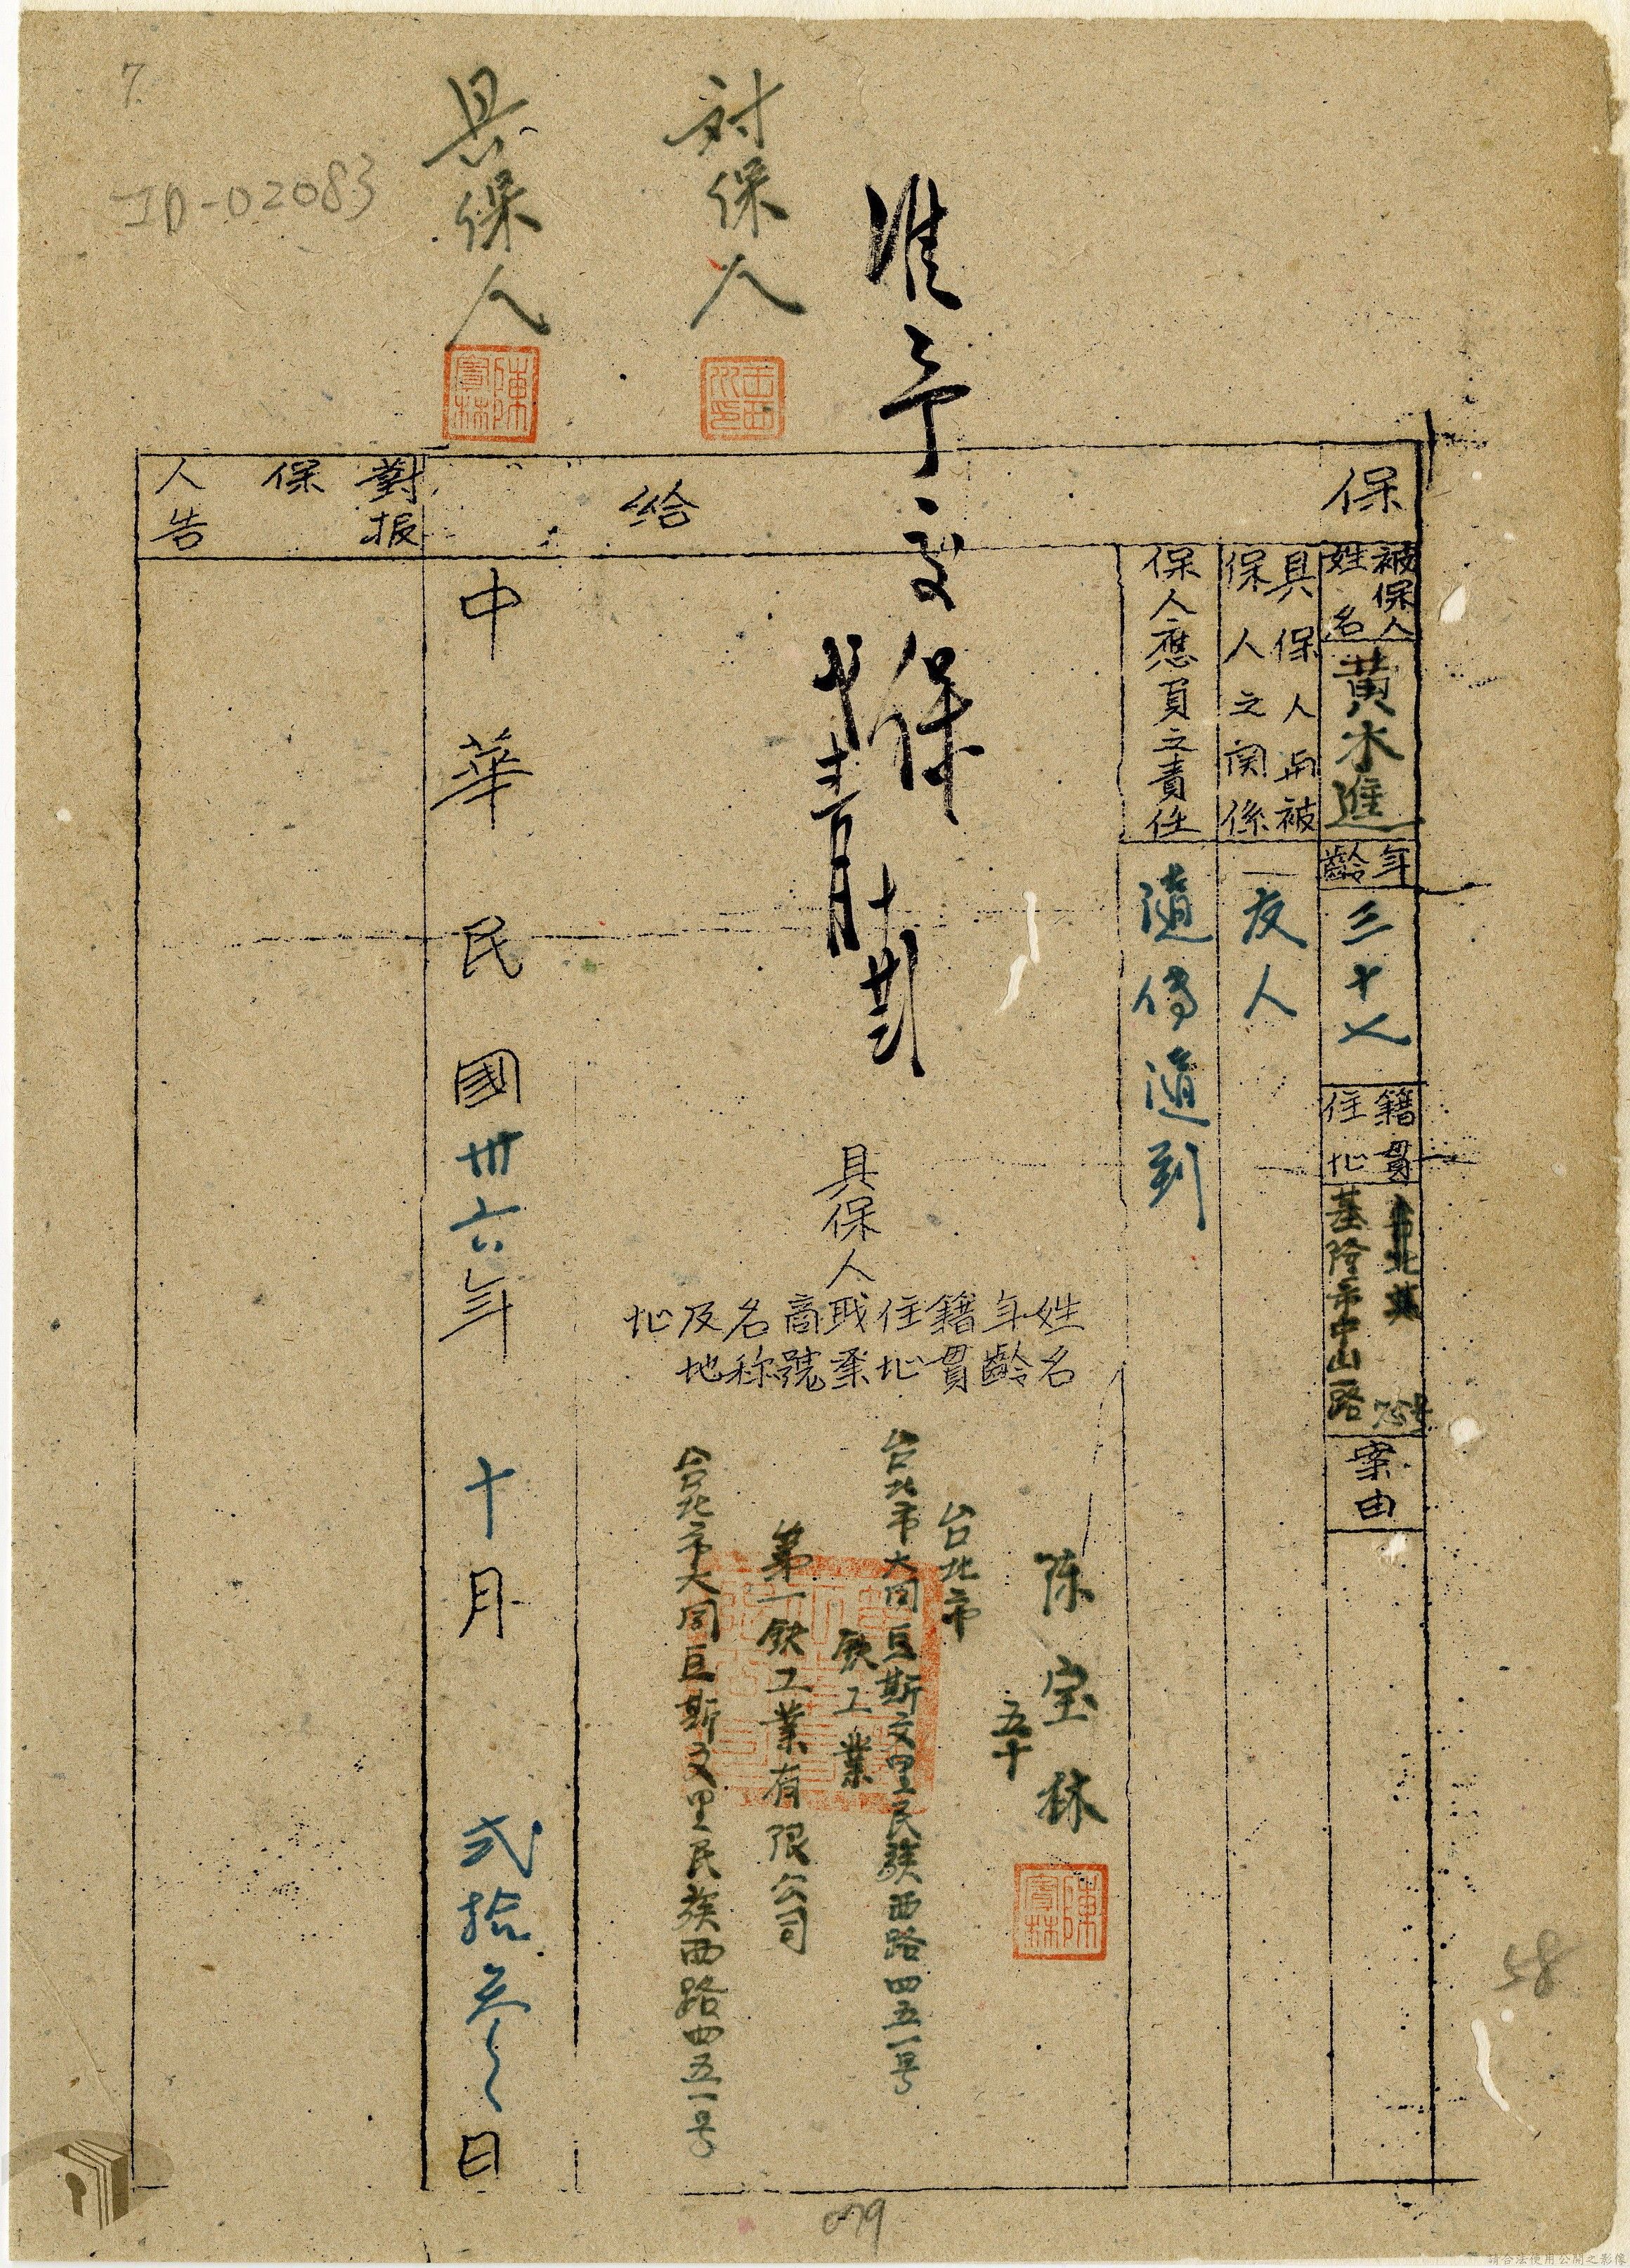 7
ID-02083
具保人
対保人
陳寶林
准予交保
保
給
對保人
報告
被保人姓名
黄水進
年齡
三十七
籍貫
住址
台北
基隆市中山路
案由
具保人与被保人之関係
友人
保人應負之責任
隨傳隨到
具保人
姓名
年齡
籍貫
住址
職業
商號
名称
及地
址
陈宝林
五十
台北市
台北市大同區斯文里民族西路四五一号
鉄工業
第一鉄工業有限公司
台北市大同區斯文里民族西路四五一号
陳寶林
中華民國卅六年十月弍拾叁日
58
079
請合法使用公開之影像